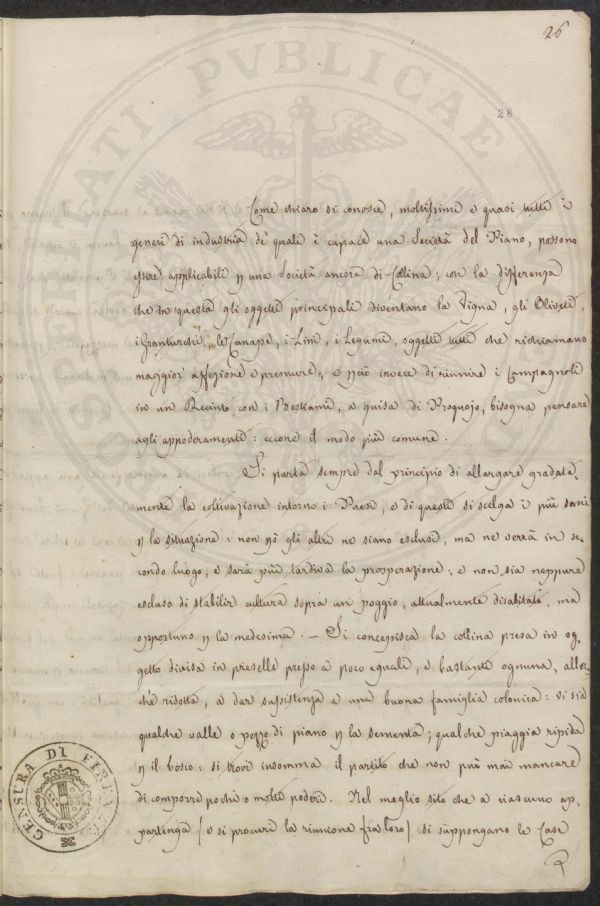 26
28
Come chiaro si conosce, moltissimi e quasi tutti i
generi di industria de' quali è capace una Società del Piano, possono
essere applicabili p una Società ancora di Collina; con la differenza
che in questa gli oggetti principali diventano la Vigna, gli Oliveti,
i Franturchi, le Canape, i Lini, i Legumi, oggetti tutti che richiamano
maggior affezione e premure; e pciò invece di riunire i Campagnoli
in un Recinto con i Bestiami, a guisa di Proquojo, bisogna pensare
agli appoderamenti: eccone il modo più comune.
Si parta sempre dal principio di allargare gradata-
mente la coltivazione intorno i Paesi, e di questi si scelga i più sani
p la situazione: non pò gli altri ne siano esclusi, ma ne verrà in se-
condo luogo, e sarà più tardiva la prosperazione; e non sia neppure
escluso di stabilir cultura sopra un poggio, attualmente disabitato, ma
opportuno p la medesima. — Si concepisca la collina presa in og-
getto divisa in preselle presso a poco eguali, e bastanti ognuna, allor-
chè ridotta, a dar sussistenza a una buona famiglia colonica: vi sia
qualche valle o pezzo di piano p la sementa; qualche piaggia ripida
p il bosco: si trovi insomma il partito che non può mai mancare
di comporre pochi o molti poderi. Nel meglio sito che a ciascuno ap-
partenga [e si procuri la riunione fra loro] si suppongano le Case
PVBLICAE
CENSURA DI FIRENZE